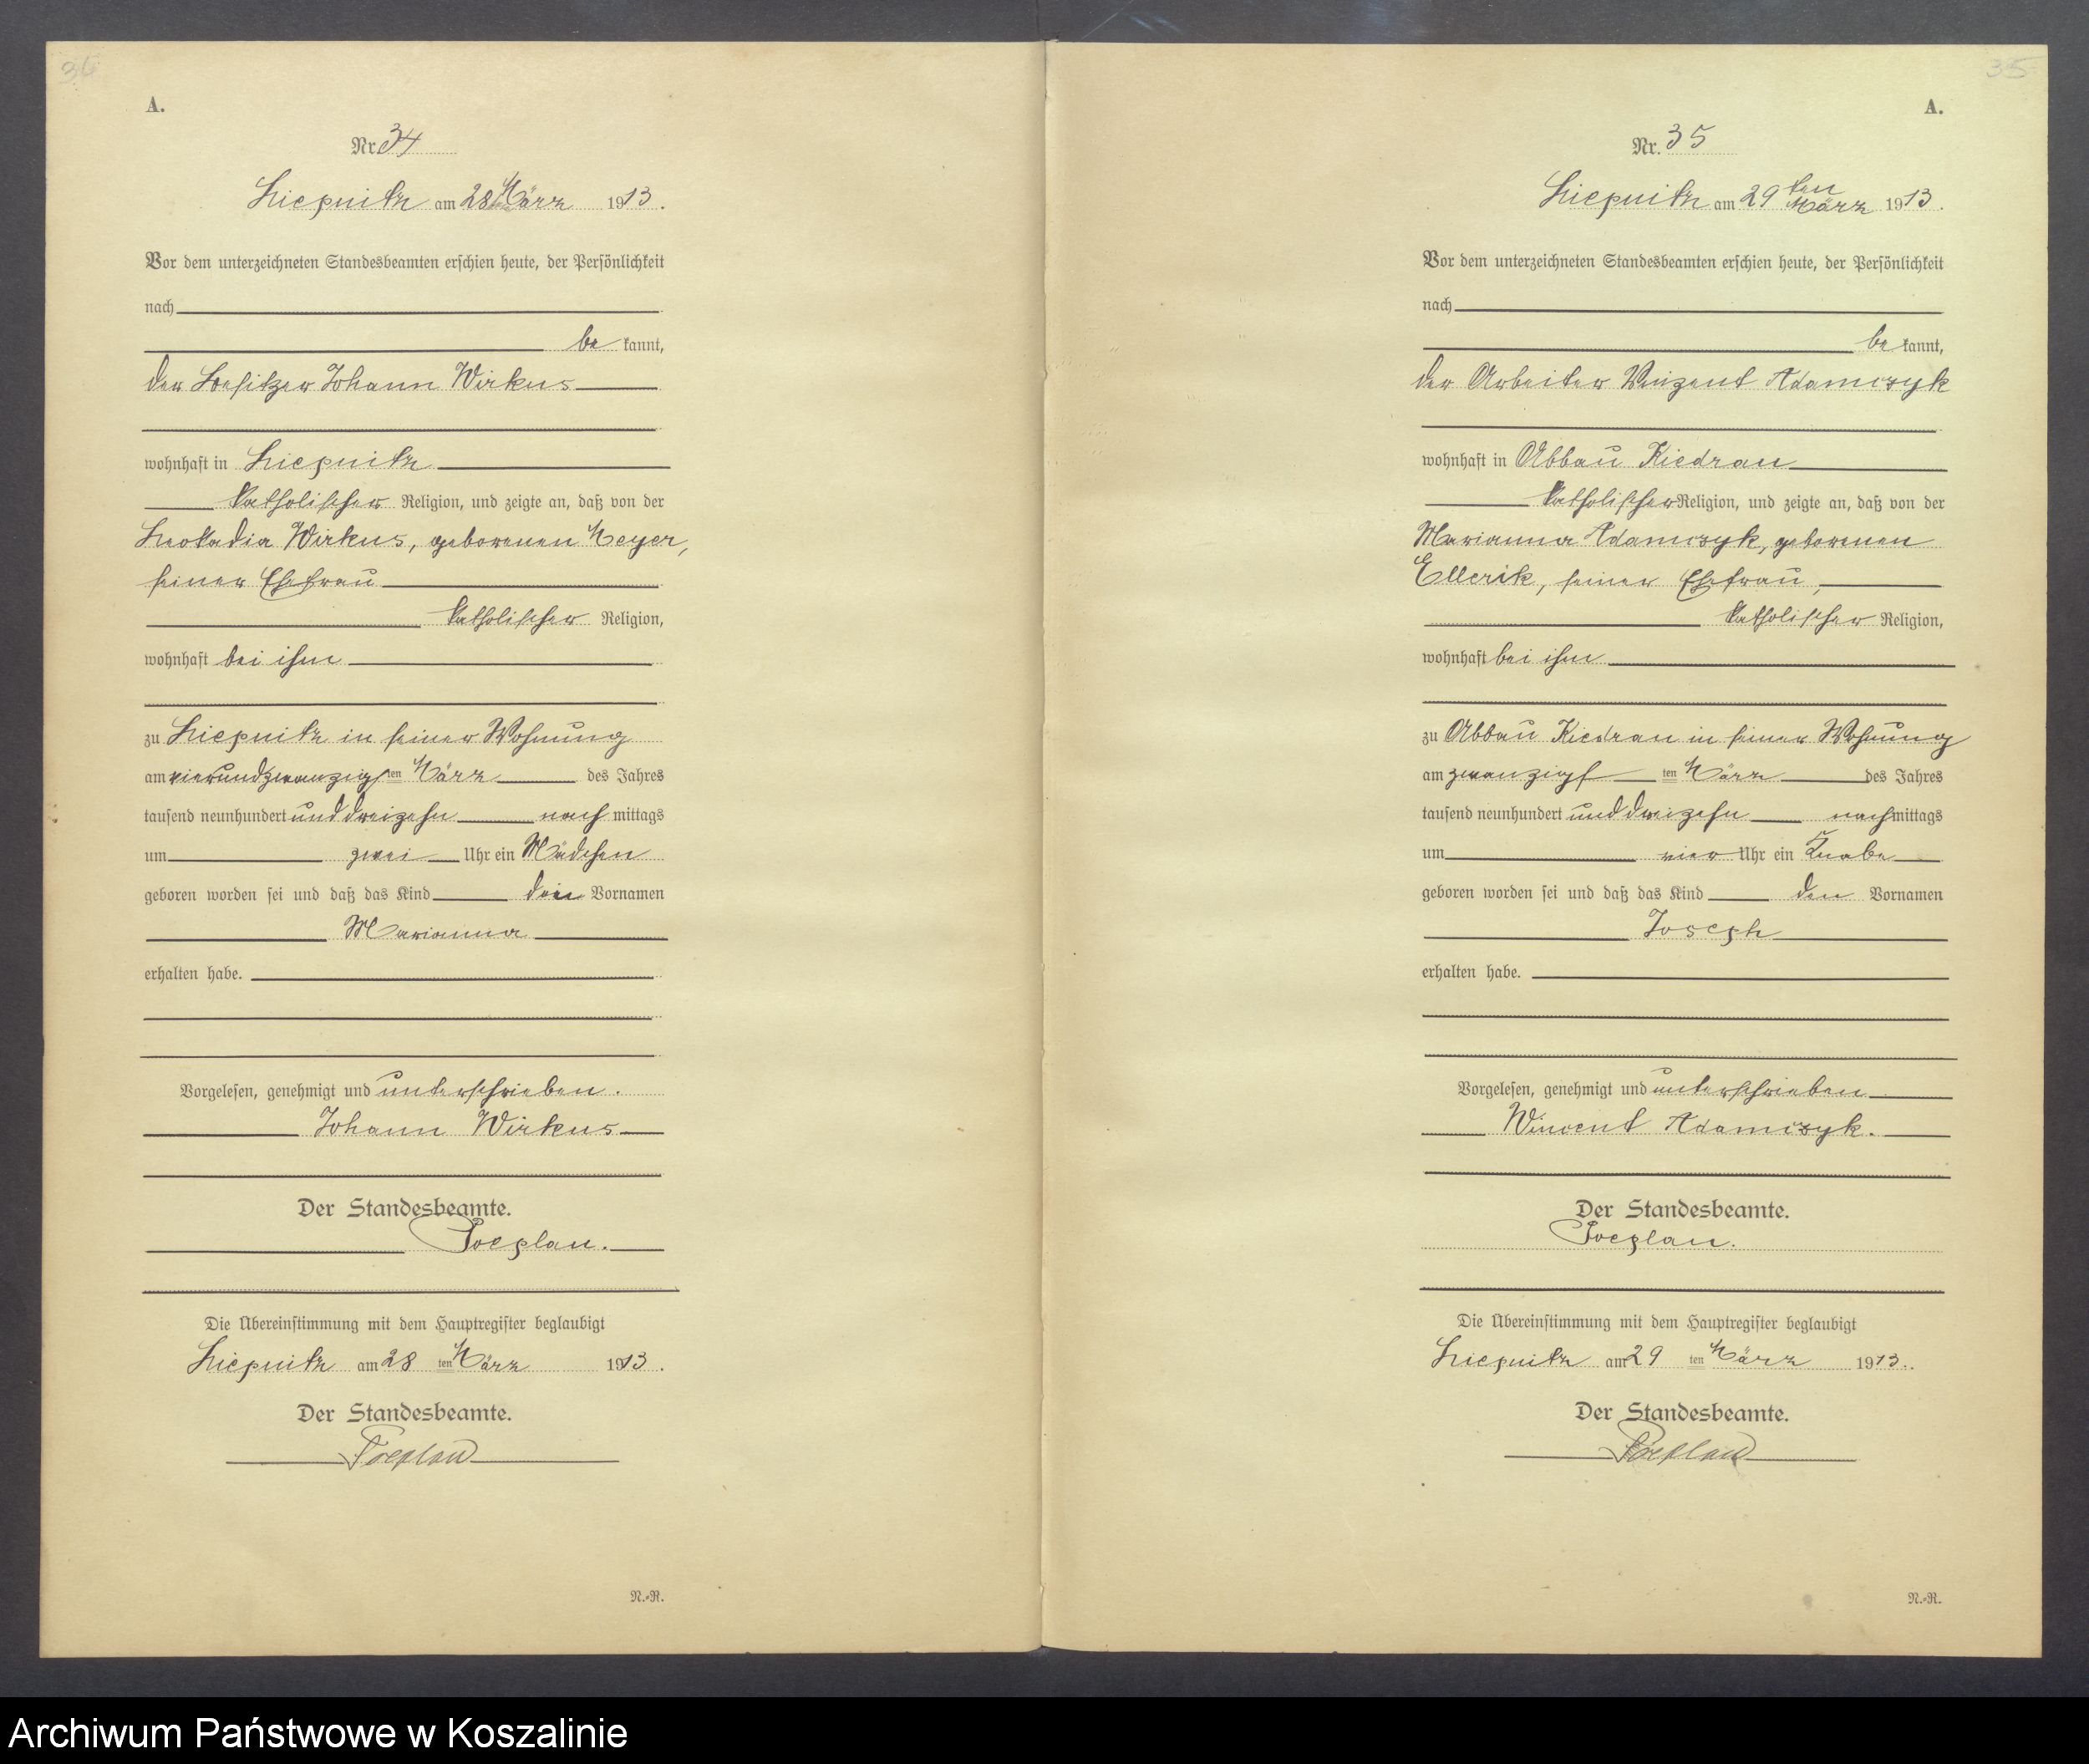 36
A.
Nr. 34
Liepnitz am 28 März 1913.
Vor dem unterzeichneten Standesbeamten erschien heute, der Persönlichkeit
nach
be kannt,
der Besitzer Johann Wirkus
wohnhaft in Liepnitz
katholischer Religion, und zeigte an, daß von der
Leokadia Wirkus, geborenen Meyer,
seiner Ehefrau
katholischer Religion,
wohnhaft bei ihm
zu Liepnitz in seiner Wohnung
am vierundzwanzigsten März des Jahres
tausend neunhundert und dreizehn nach mittags
um zwei Uhr ein Mädchen
geboren worden sei und daß das Kind den Vornamen
Marianna
erhalten habe.
Vorgelesen, genehmigt und unterschrieben.
Johann Wirkus
Der Standesbeamte.
Poeplau.
Die Übereinstimmung mit dem Hauptregister beglaubigt
Liepnitz am 28 ten März 1913.
Der Standesbeamte.
Poeplau
N.-R.
35
A.
Nr. 35
Liepnitz am 29 ten März 1913.
Vor dem unterzeichneten Standesbeamten erschien heute, der Persönlichkeit
nach
be kannt,
der Arbeiter Vinzent Adamczyk
wohnhaft in Abbau Kiedrau
katholischer Religion, und zeigte an, daß von der
Marianna Adamczyk, geborenen
Ellerik, seiner Ehefrau,
katholischer Religion,
wohnhaft bei ihm
zu Abbau Kiedrau in seiner Wohnung
am zwanzigsten März des Jahres
tausend neunhundert und dreizehn nachmittags
um vier Uhr ein Knabe
geboren worden sei und daß das Kind den Vornamen
Joseph
erhalten habe.
Vorgelesen, genehmigt und unterschrieben
Vincent Adamczyk.
Der Standesbeamte.
Poeplau.
Die Übereinstimmung mit dem Hauptregister beglaubigt
Liepnitz am 29 ten März 1913.
Der Standesbeamte.
Poeplau
N.-R.
Archiwum Państwowe w Koszalinie